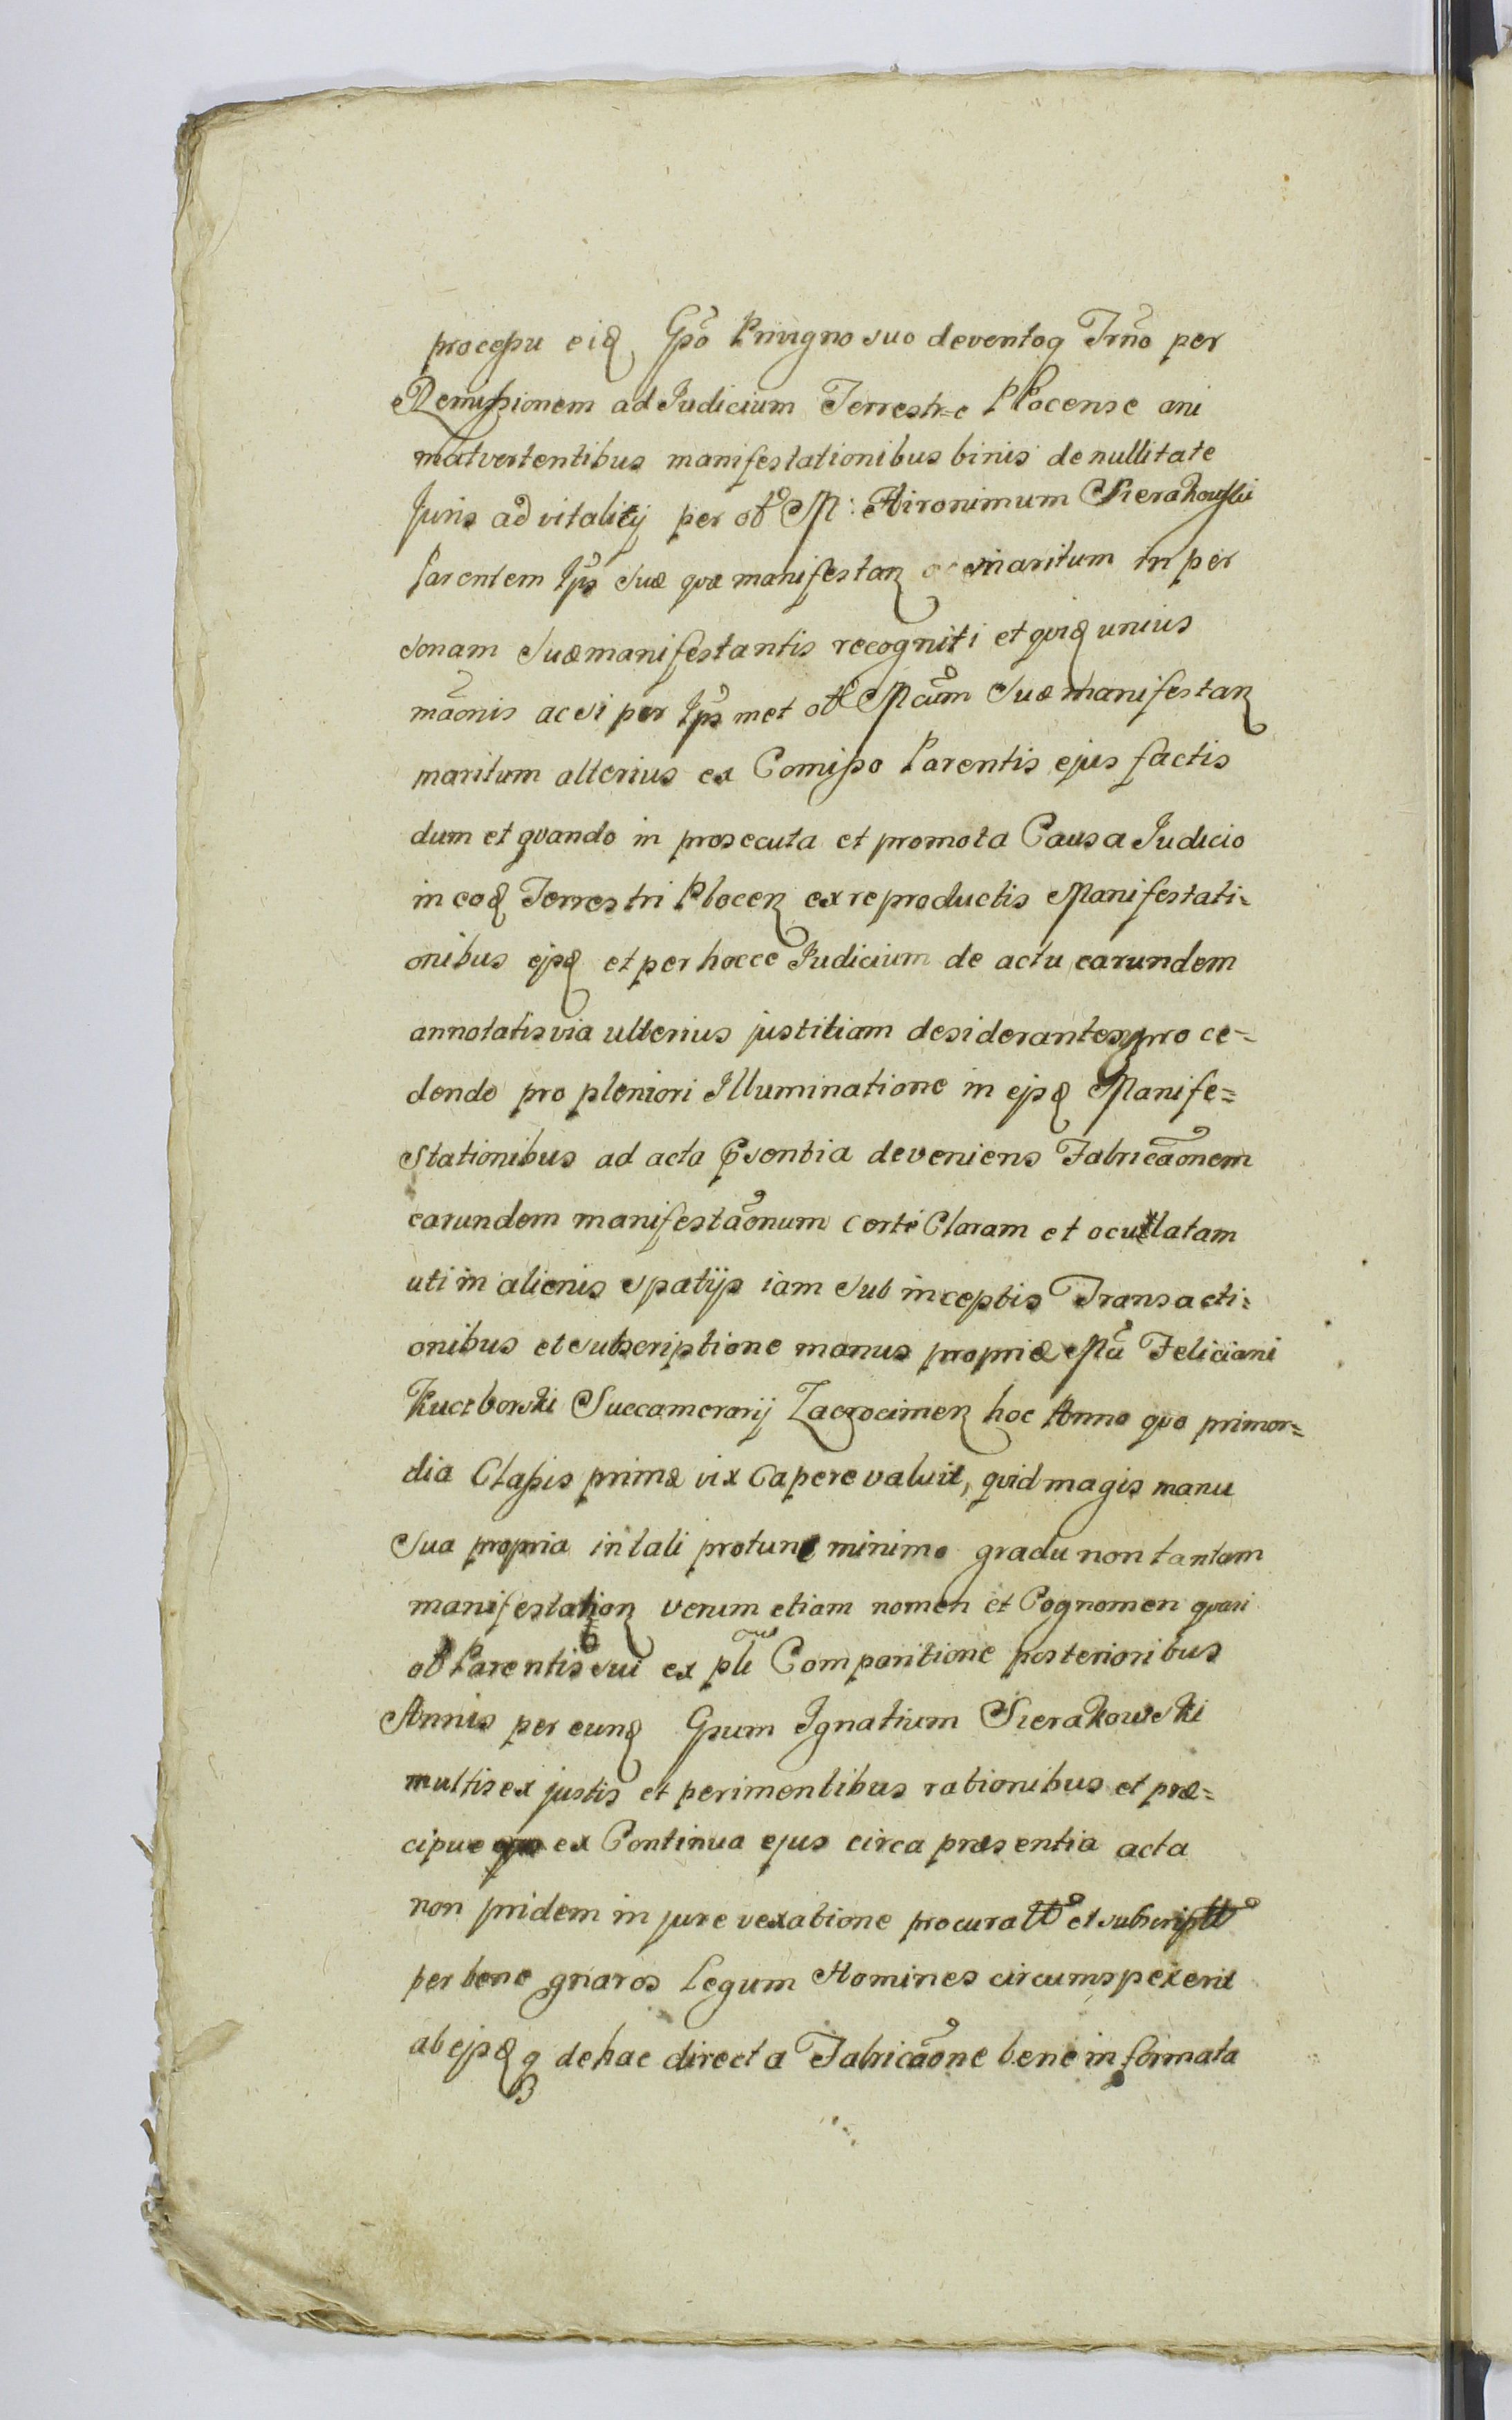 processu eidq Gpso Privigno suo deventoq Trno per
Remissionem ad Judicium Terrestre Plocense ani
matvertentibus manifestationibus binis de nullitate
Juris advitalitij per ol̃ M: Hironimum Sierakowski
Parentem Ips̃ suæ quæ manifestan ac maritum in per
sonam suæ manifestantis recogniti et quidq unius
mãonis ac si per Ips̃ met ol̃ Mcũm suæ manifestan
maritum alterius ex Comisso Parentis ejus factis
dum et quando in prosecuta et promota Causa Judicio
in eodq Terrestri Plocen ex reproductis Manifestati=
onibus ejsdq et per hocce Judicium de actu earundem
annotatis via ulterius justitiam desiderantes proce=
dendo pro pleniori Illuminatione in ejsdq Manife=
stationibus ad acta psentia deveniens Fabricãonem
earundem manifestãonum certè Claram et oculatam
uti in alienis spatijs iam sub inceptis Transacti=
onibus et subscriptione manus propriæ Mci Feliciani
Kuczborski Succamerarij Zacrocimen hoc Anno quo primor=
dia Classis primæ vix Capere valuit, quid magis manu
sua propria in tali protunc minimo gradu non tantam
manifestation verum etiam nomen et Cognomen quasi
ob Parentis sui ex pli Comparitione posterioribus
Annis per eundq Gpsum Ignatium Sierakowski
multis ex justis et perimentibus rationibus et præ=
cipue ex Continua ejus circa præsentia acta
non pridem in jure vexatione procurat̃ et subscript̃
per bene gnaros Legum Homines circumspexerit
ab ejsdq q de hac directa Fabricãone bene informata